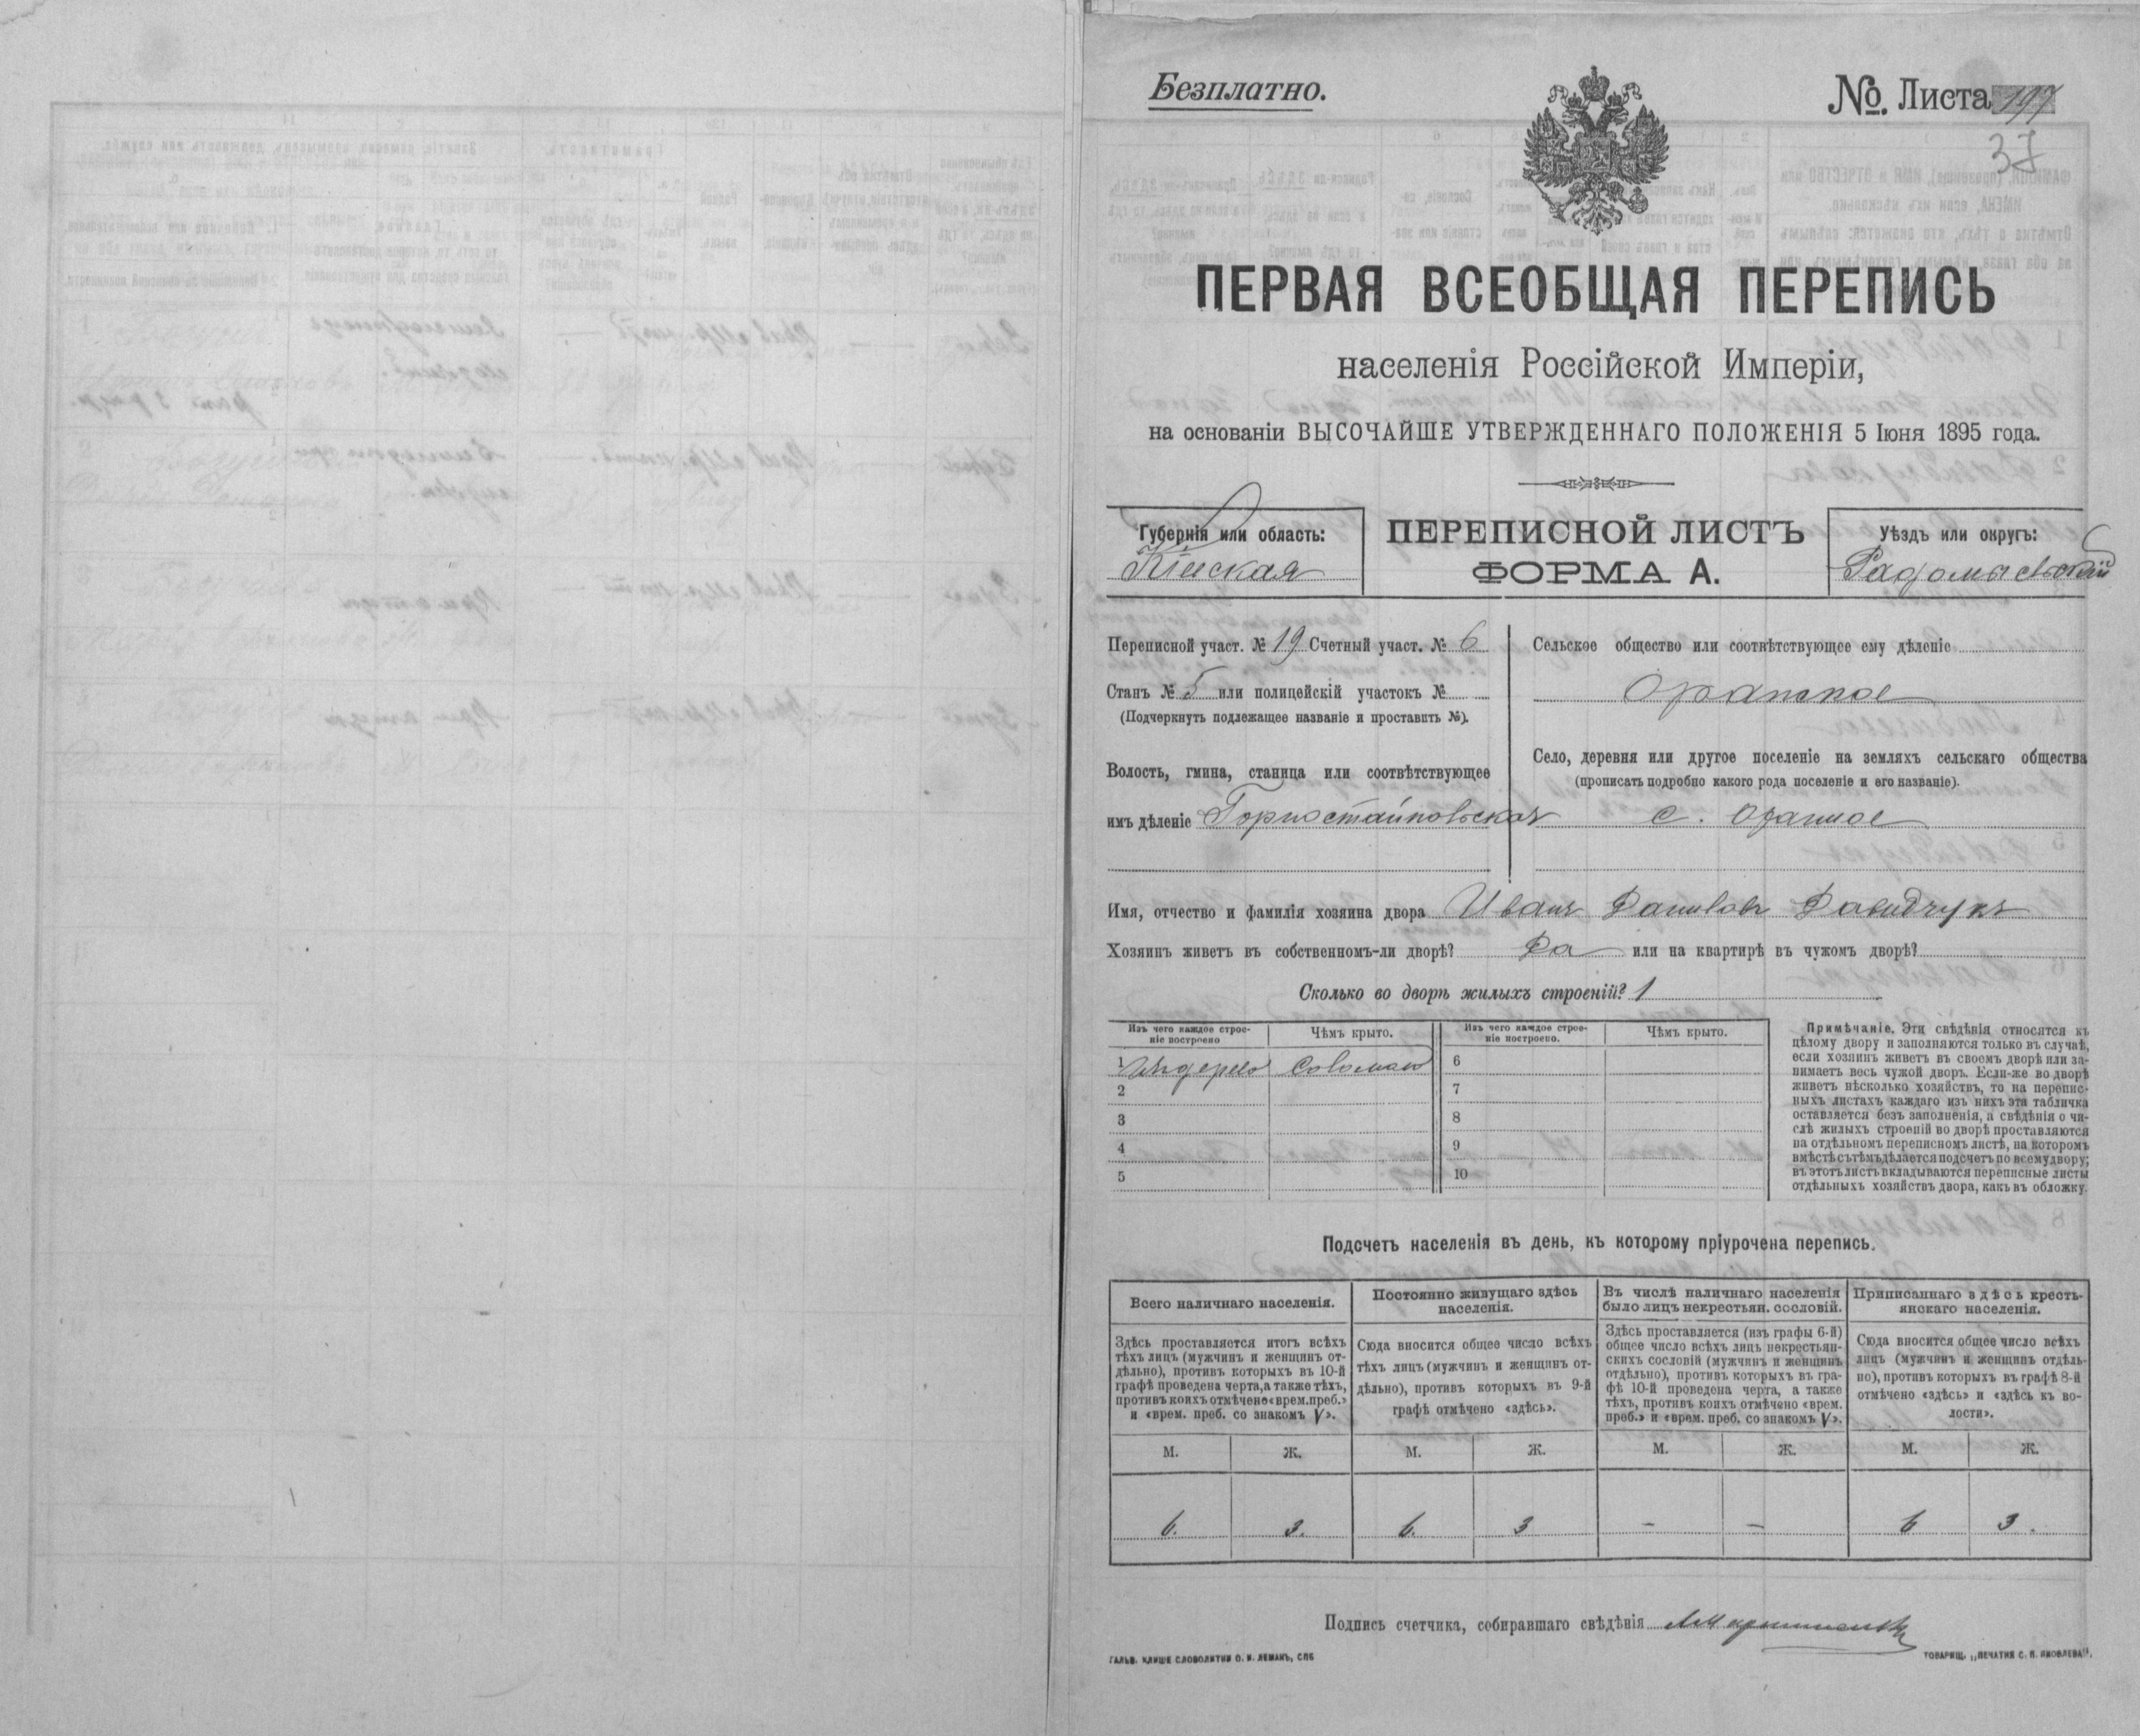 Безплатно.
№ Листа 197
37
ПЕРВАЯ ВСЕОБЩАЯ ПЕРЕПИСЬ
населенія Россійской Имперіи,
на основаніи ВЫСОЧАЙШЕ УТВЕРЖДЕННАГО ПОЛОЖЕНІЯ 5 Іюня 1895 года.
Губернія или область:
Кіевская
ПЕРЕПИСНОЙ ЛИСТЪ
ФОРМА А.
Уѣздъ или округъ:
Радомысльскій
Переписной участ. № 19 Счетный участ. № 6
Станъ № 5 или полицейскій участокъ №
(Подчеркнуть подлежащее названіе и проставить №).
Волость, гмина, станица или соотвѣтствующее
имъ дѣленіе Горностайпольская
Сельское общество или соотвѣтствующее ему дѣленіе
Оранное
Село, деревня или другое поселеніе на земляхъ сельскаго общества
(прописать подробно какого рода поселеніе и его названіе).
с. Оранное
Имя, отчество и фамилія хозяина двора Иванъ Даниловъ Давидчукъ
Хозяинъ живетъ въ собственномъ-ли дворѣ? Да или на квартирѣ въ чужомъ дворѣ?
Сколько во дворѣ жилыхъ строеній? 1
Изъ чего каждое строеніе построено
Чѣмъ крыто.
Изъ чего каждое строеніе построено.
Чѣмъ крыто.
1 Изъ дерева Соломою
2
3
4
5
6
7
8
9
10
Примѣчаніе. Эти свѣдѣнія относятся къ
цѣлому двору и заполняются только въ случаѣ,
если хозяинъ живетъ въ своемъ дворѣ или за-
нимаетъ весь чужой дворъ. Если-же во дворѣ
живетъ нѣсколько хозяйствъ, то на перепис-
ныхъ листахъ каждаго изъ нихъ эта табличка
оставляется безъ заполненія, а свѣдѣнія о чи-
слѣ жилыхъ строеній во дворѣ проставляются
на отдѣльномъ переписномъ листѣ, на которомъ
вмѣстѣ съ тѣмъ дѣлается подсчетъ по всему двору;
въ этотъ листъ вкладываются переписные листы
отдѣльныхъ хозяйствъ двора, какъ въ обложку.
Подсчетъ населенія въ день, къ которому пріурочена перепись.
Всего наличнаго населенія.
Здѣсь проставляется итогъ всѣхъ
тѣхъ лицъ (мужчинъ и женщинъ от-
дѣльно), противъ которыхъ въ 10-й
графѣ проведена черта, а также тѣхъ,
противъ коихъ отмѣчено «врем. преб.»
и «врем. преб. со знакомъ V».
Постоянно живущаго здѣсь
населенія.
Сюда вносится общее число всѣхъ
тѣхъ лицъ (мужчинъ и женщинъ от-
дѣльно), противъ которыхъ въ 9-й
графѣ отмѣчено «здѣсь».
Въ числѣ наличнаго населенія
было лицъ некрестьян. сословій.
Здѣсь проставляется (изъ графы 6-й)
общее число всѣхъ лицъ некрестьян-
скихъ сословій (мужчинъ и женщинъ
отдѣльно), противъ которыхъ въ гра-
фѣ 10-й проведена черта, а также
тѣхъ, противъ коихъ отмѣчено «врем.
преб.» и «врем. преб. со знакомъ V».
Приписаннаго здѣсь кресть-
янскаго населенія.
Сюда вносится общее число всѣхъ
лицъ (мужчинъ и женщинъ отдѣль-
но), противъ которыхъ въ графѣ 8-й
отмѣчено «здѣсь» и «здѣсь къ во-
лости».
М. Ж. М. Ж. М. Ж. М. Ж.
6. 3. 6. 3 – – 6 3.
Подпись счетчика, собиравшаго свѣдѣнія
ГАЛЬВ. КЛИШЕ СЛОВОЛИТНИ О. И. ЛЕМАНЪ, СПБ
ТОВАРИЩ. „ПЕЧАТНЯ С. П. ЯКОВЛЕВА".